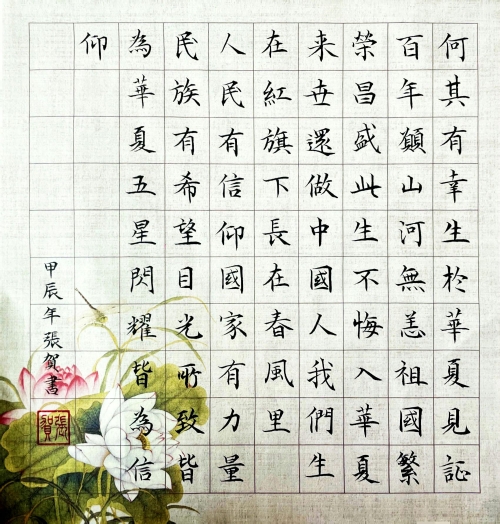 何其有幸生於華夏見証
百年願山河無恙祖國繁
榮昌盛此生不悔入華夏
来世還做中國人我們生
在紅旗下長在春風里
人民有信仰國家有力量
民族有希望目光所致皆
為華夏五星閃耀皆為信
仰
甲辰年張賀書
張賀